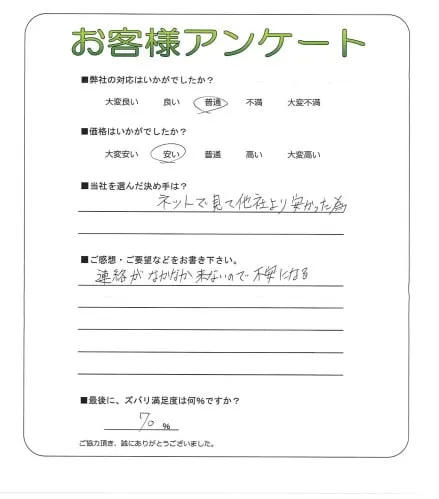 お客様アンケート
■弊社の対応はいかがでしたか？
大変良い 良い 普通 不満 大変不満
■価格はいかがでしたか？
大変安い 安い 普通 高い 大変高い
■当社を選んだ決め手は？
ネットで見て他社より安かった為
■ご感想・ご要望などをお書き下さい。
連絡がなかなか来ないので不安になる
■最後に、ズバリ満足度は何％ですか？
70 ％
ご協力頂き、誠にありがとうございました。